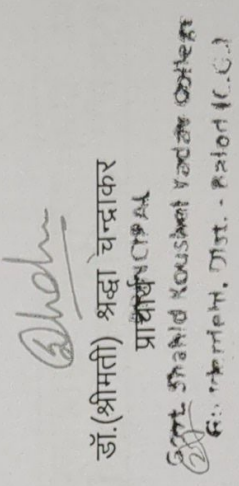 डॉ.(श्रीमती) श्रद्धा चन्द्राकर
प्राचार्य
PRINCIPAL
Govt. Shahid Koushal Yadav College
Dist. - Balod (C.G.)